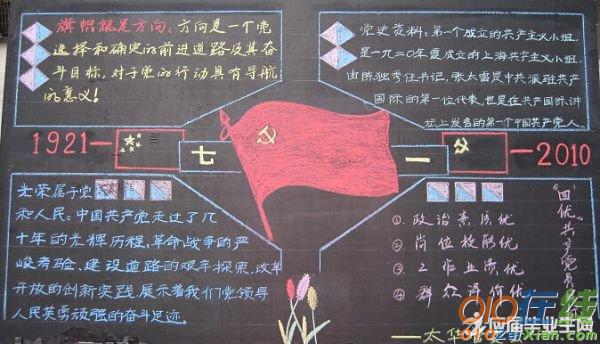 旗帜就是方向：方向是一个党
选择和确定的前进道路及其奋
斗目标，对于党的行动具有导航
的意义！
党史资料：第一个成立的共产主义小组，
是一九二〇年夏成立的上海共产主义小组，
由陈独秀任书记，张太雷是中共派驻共产
国际的第一位代表，也是在共产国际讲
坛上发言的第一个中国共产党人。
1921
七
一
2010
光荣属于党
和人民：中国共产党走过了几
十年的光辉历程，革命战争的严
峻考验、建设道路的艰辛探索，改革
开放的创新实践，展示着我们党领导
人民英勇顽强的奋斗足迹。
“四优”共产党员
①、政治素质优
②、岗位技能优
③、工作业绩优
④、群众评价优
——太华
应届毕业生网
oizaixian.com